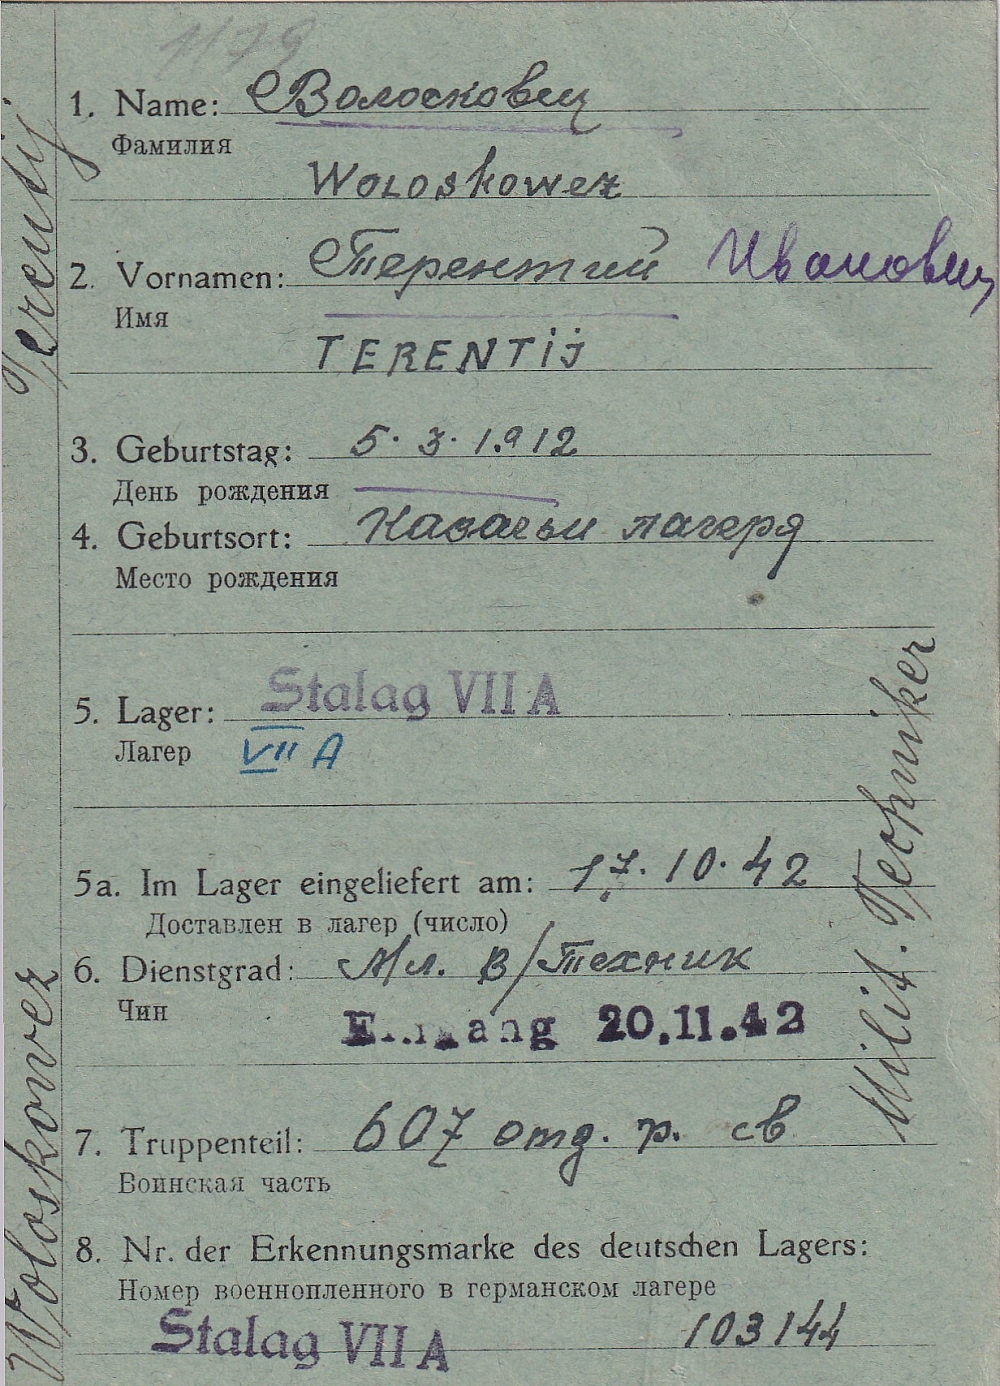 1179
1. Name: Волосковец
Фамилия
Woloskowez
2. Vornamen: Терентий Иванович
Имя
TERENTij
3. Geburtstag: 5. 3. 1.912
День рождения
4. Geburtsort: Казачьи лагеря
Место рождения
5. Lager: Stalag VII A
Лагер VII A
5a. Im Lager eingeliefert am: 17. 10. 42
Доставлен в лагер (число)
6. Dienstgrad: Мл. В/Техник
Чин
Eingang 20.11.42
7. Truppenteil: 607 отд. р. св
Воинская часть
8. Nr. der Erkennungsmarke des deutschen Lagers:
Номер военнопленного в германском лагере
Stalag VII A 103144
Woloskowez Terentij
Milit. Techniker